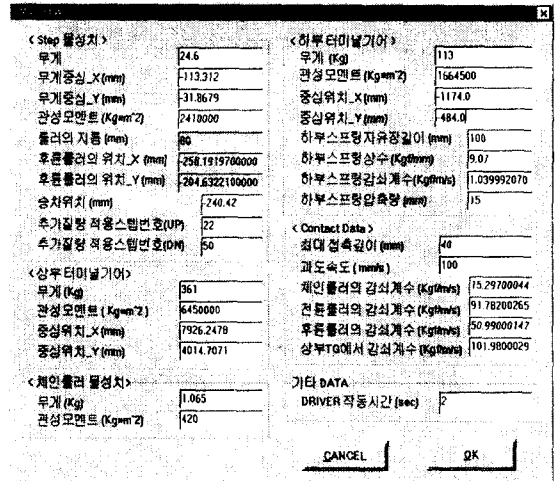 < Step 물성치 >
무게 24.6
무게중심_X(mm) -113.312
무게중심_Y(mm) -31.8679
관성모멘트(Kg*m^2) 2410000
롤러의 지름 (mm) 80
후륜롤러의 위치_X (mm) -258.1919700000
후륜롤러의 위치_Y (mm) -204.6322100000
승차위치 (mm) -240.42
추가질량 적용스텝번호(UP) 22
추가질량 적용스텝번호(DN) 50
<상부 터미널기어>
무게 (Kg) 361
관성모멘트 ( Kg*m^2 ) 6450000
중심위치_X(mm) 7926.2478
중심위치_Y(mm) 4014.7071
<체인롤러 물성치>
무게 (Kg) 1.065
관성모멘트 (Kg*m^2) 420
<하부 터미널기어 >
무게 (Kg) 113
관성모멘트 (Kg*m^2) 1664500
중심위치_X(mm) -1174.0
중심위치_Y(mm) -484.0
하부스프링자유장길이 (mm) 100
하부스프링상수(Kgf/mm) 9.07
하부스프링감쇠계수(Kgf/m/s) 1.039992070
하부스프링압축량 (mm) 15
< Contact Data >
최대 접촉깊이 (mm) 40
과도속도 ( mm/s ) 100
체인롤러의 감쇠계수 (Kgf/m/s) 15.29700044
전륜롤러의 감쇠계수 (Kgf/m/s) 91.78200265
후륜롤러의 감쇠계수 (Kgf/m/s) 50.99000147
상부TG에서 감쇠계수 (Kgf/m/s) 101.9800029
기타 DATA
DRIVER 작동시간 (sec) 2
CANCEL OK